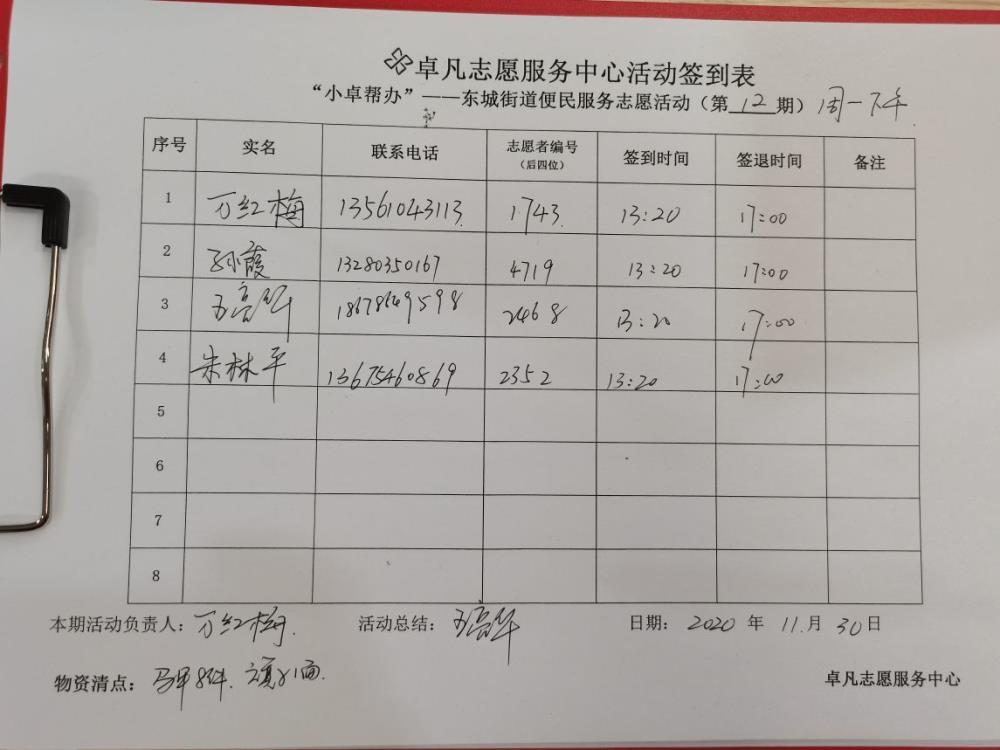 卓凡志愿服务中心活动签到表
“小卓帮办”——东城街道便民服务志愿活动（第12期）周一下午
序号 实名 联系电话 志愿者编号（后四位） 签到时间 签退时间 备注
1 万红梅 13561043113 1743 13:20 17:00
2 孙霞 13280350167 4719 13:20 17:00
3 王高华 2468 13:20 17:00
4 朱林平 13675460869 2352 13:20 17:00
5
6
7
8
本期活动负责人：万红梅 活动总结：王高华 日期：2020年11月30日
物资清点：马甲8件
卓凡志愿服务中心